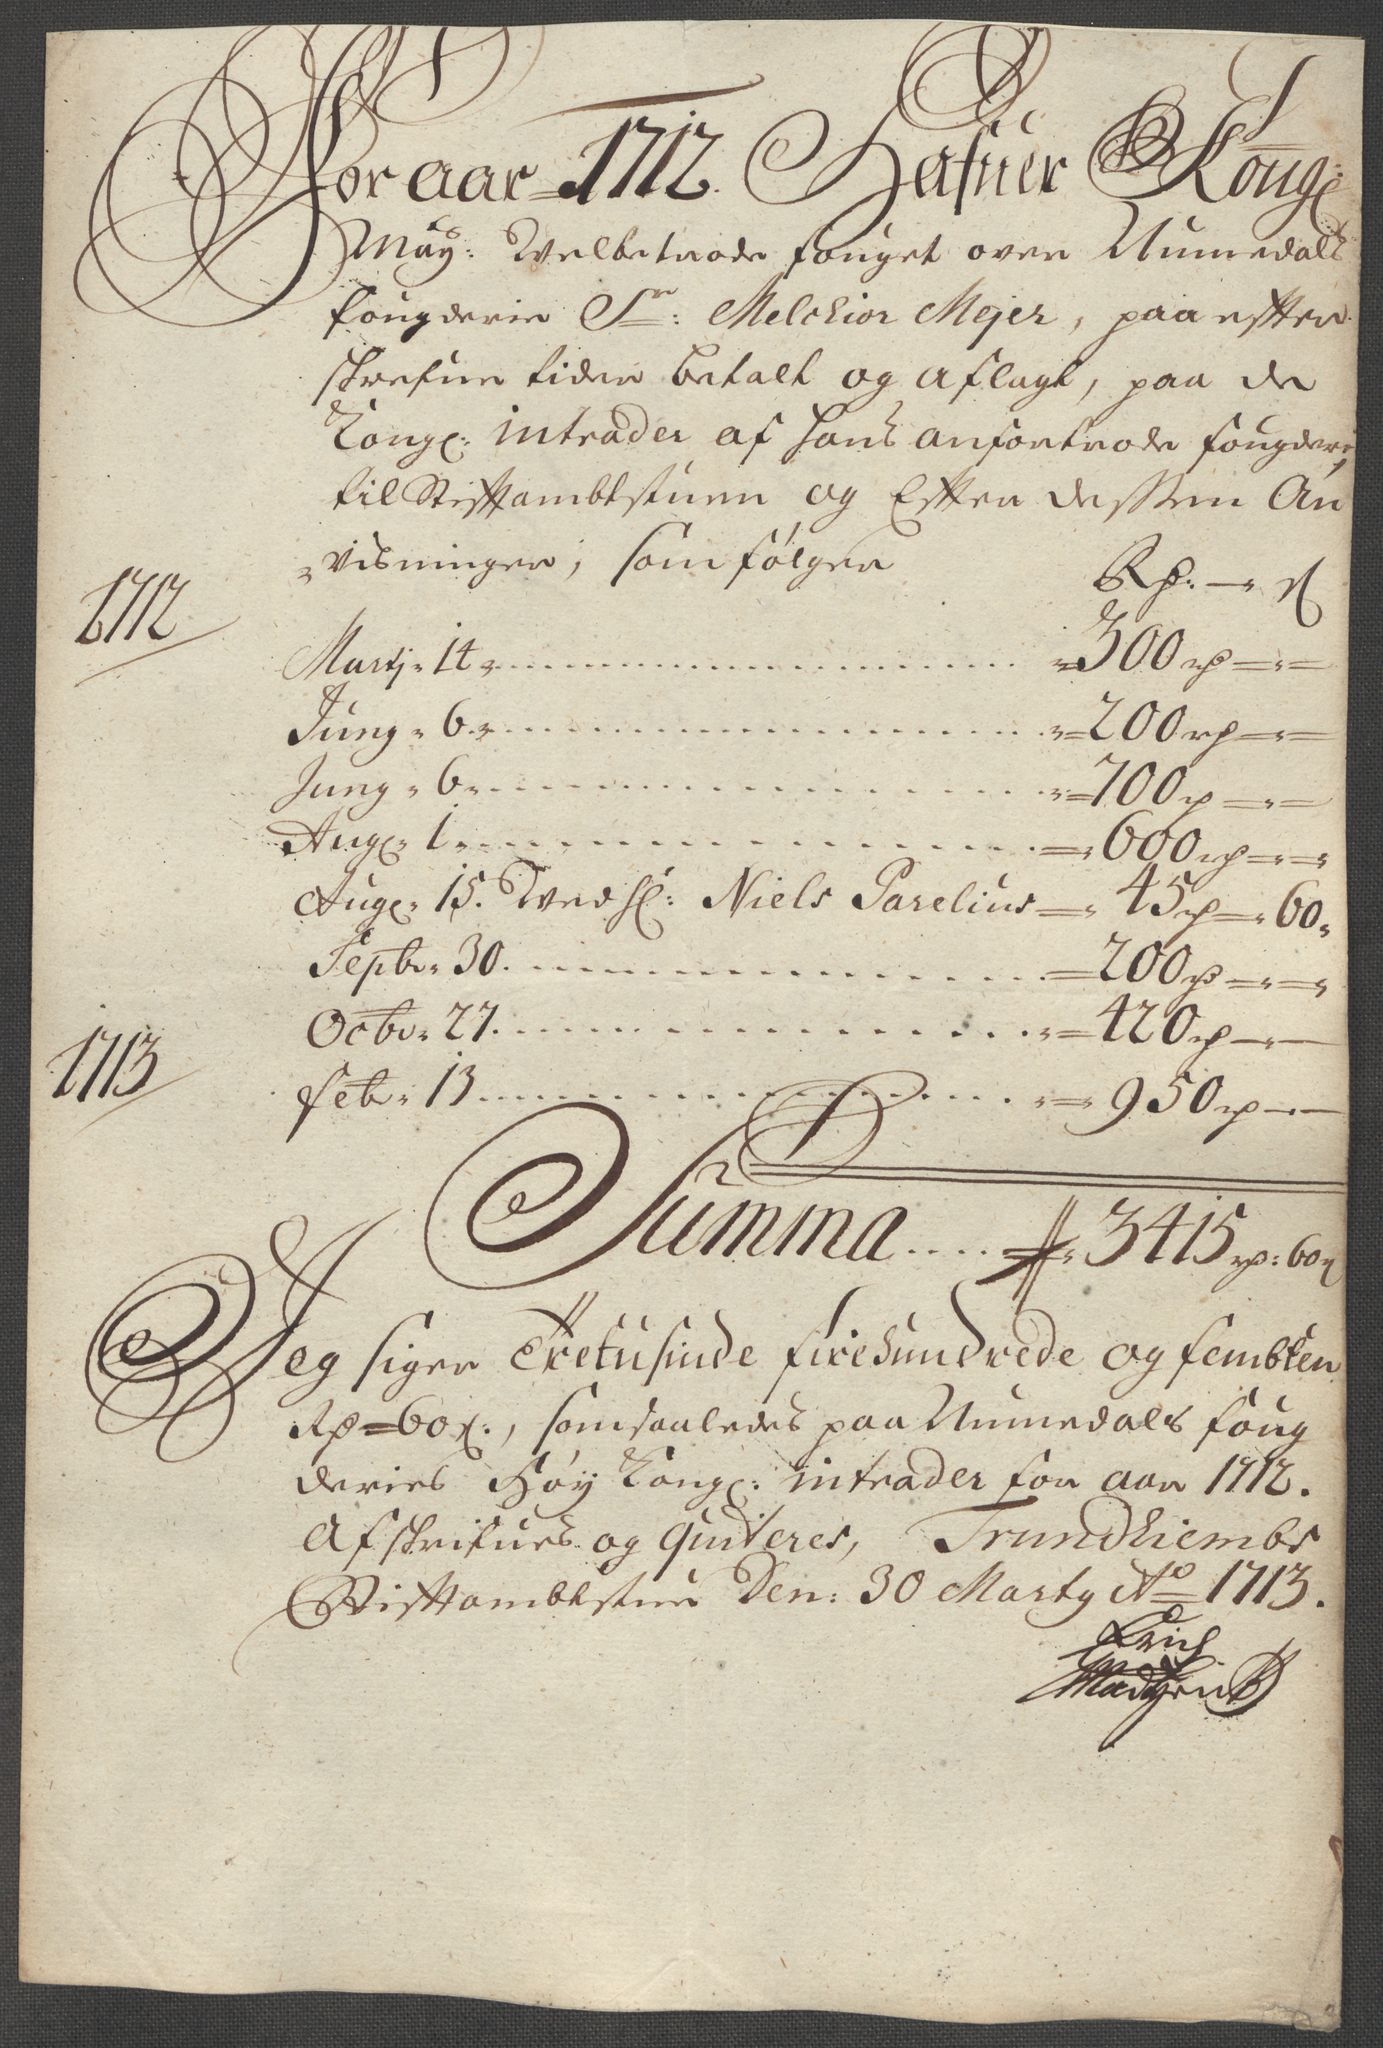 For aar 1712 Hafuer Kongl:
May: Welbetrode fouget over Numedals
fougderie Sr: Melchior Mejer, paa efter
skrefne tider betalt og aflagt, paa de
Kongl: intrader af hans anfortrode fougderi,
til Stiftambtstuen og Efter dessen An
visninger, som følger
Rd:
1712
Martj 14 300 rd
Junj 6 200 rd
Junj 6 700 rd
Aug: 1 600 rd
Aug: 15. Wed Sl: Niels Parelius 45 rd 60
Septbr 30. 200 rd
Octbr 27. 420 rd
1713
Febr 13 950 rd
Summa 3415 rd: 60
Jeg siger Tretusinde firehundrede og fembten
Rd 60 s:, som saaledes paa Numedals foug
deries Høy Kongl: intrader for aar 1712.
Afskrifues og quiteres, Trundhiembs
Stiftambtstue Den: 30 Martij Ao 1713.
Erich